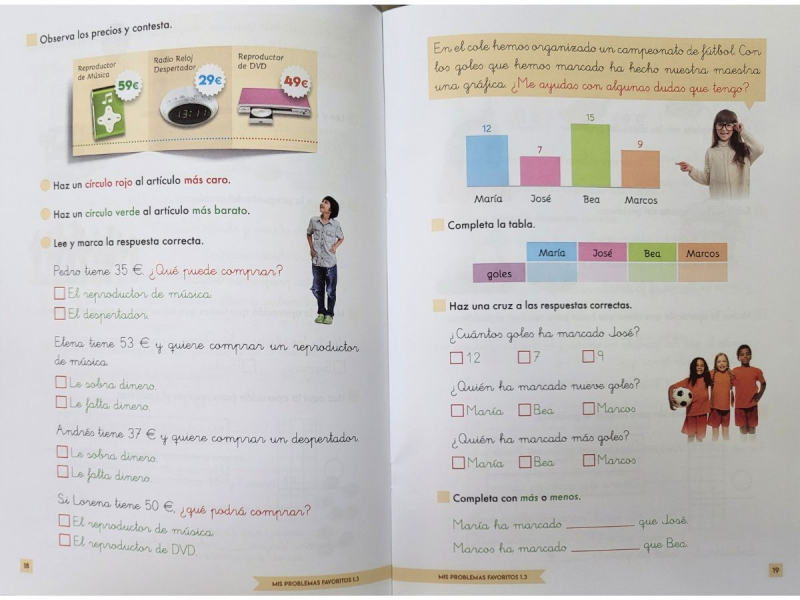 Observa los precios y contesta.
Reproductor
de Música
59€
Radio Reloj
Despertador
29€
Reproductor
de DVD
49€
13:11
Haz un círculo rojo al artículo más caro.
Haz un círculo verde al artículo más barato.
Lee y marca la respuesta correcta.
Pedro tiene 35 €. ¿Qué puede comprar?
El reproductor de música.
El despertador.
Elena tiene 53 € y quiere comprar un reproductor
de música.
Le sobra dinero.
Le falta dinero.
Andrés tiene 37 € y quiere comprar un despertador.
Le sobra dinero.
Le falta dinero.
Si Lorena tiene 50 €, ¿qué podrá comprar?
El reproductor de música.
El reproductor de DVD.
18
MIS PROBLEMAS FAVORITOS 1.3
En el cole hemos organizado un campeonato de fútbol. Con
los goles que hemos marcado ha hecho nuestra maestra
una gráfica. ¿Me ayudas con algunas dudas que tengo?
12
7
15
9
María José Bea Marcos
Completa la tabla.
María José Bea Marcos
goles
Haz una cruz a las respuestas correctas.
¿Cuántos goles ha marcado José?
12 7 9
¿Quién ha marcado nueve goles?
María Bea Marcos
¿Quién ha marcado más goles?
María Bea Marcos
Completa con más o menos.
María ha marcado ________ que José.
Marcos ha marcado ________ que Bea.
MIS PROBLEMAS FAVORITOS 1.3
19